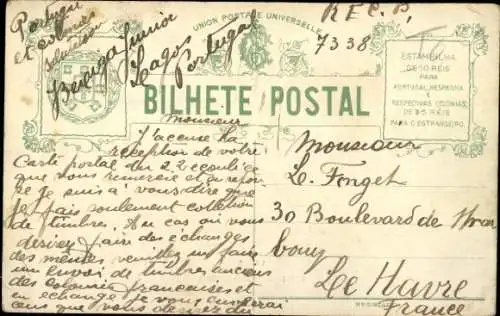 Portugal
et colonies
UNION POSTALE UNIVERSELLE
R.E.C.P.
7338
Bexiga Junior
Lagos
Portugal
ESTAMPILHA
DE 10 RÉIS
PARA
PORTUGAL, HESPANHA
E
RESPECTIVAS COLONIAS,
DE 20 RÉIS
PARA O ESTRANGEIRO.
BILHETE POSTAL
Monsieur
J'accuse la
réception de votre
Carte postal du 22 écoulé
que vous remercie et en repon-
se je suis à vous dire que
je fais soulement colletion
de timbres. Au cas où vous
desirez faire des échanges
des mêmes veuillez me faire
un envoi de timbres anciens
des colonies françaises et
en échange je vous enverai
ceus que vous desirez du
Monsieur
L. Fonget
30 Boulevard de Stras
bourg
Le Havre
France